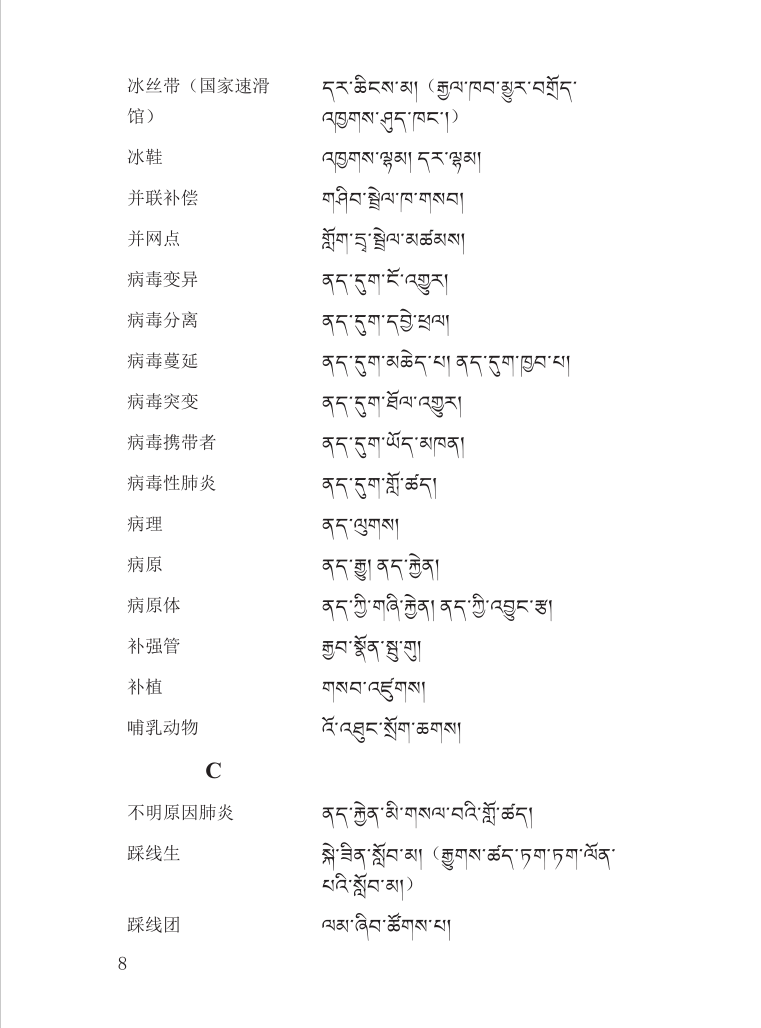 冰丝带（国家速滑 དར་ཆིངས་མ།（རྒྱལ་ཁབ་མྱུར་བགྲོད་
馆） འཁྱགས་ཤུད་ཁང་།）
冰鞋 འཁྱགས་ལྷམ། དར་ལྷམ།
并联补偿 གཤིབ་སྦྲེལ་ཁ་གསབ།
并网点 གློག་དྲྭ་སྦྲེལ་མཚམས།
病毒变异 ནད་དུག་ངོ་འགྱུར།
病毒分离 ནད་དུག་དབྱེ་ཕྲལ།
病毒蔓延 ནད་དུག་མཆེད་པ། ནད་དུག་ཁྱབ་པ།
病毒突变 ནད་དུག་ཐོལ་འགྱུར།
病毒携带者 ནད་དུག་ཡོད་མཁན།
病毒性肺炎 ནད་དུག་གློ་ཚད།
病理 ནད་ལུགས།
病原 ནད་རྒྱུ། ནད་རྐྱེན།
病原体 ནད་ཀྱི་གཞི་རྐྱེན། ནད་ཀྱི་འབྱུང་རྩ།
补强管 རྒྱབ་སྣོན་སྦུ་གུ།
补植 གསབ་འཛུགས།
哺乳动物 འོ་འཐུང་སྲོག་ཆགས།
C
不明原因肺炎 ནད་རྐྱེན་མི་གསལ་བའི་གློ་ཚད།
踩线生 སྐེ་ཟིན་སློབ་མ།（རྒྱུགས་ཚད་ཏག་ཏག་ལོན་
པའི་སློབ་མ།）
踩线团 ལམ་ཞིབ་ཚོགས་པ།
8